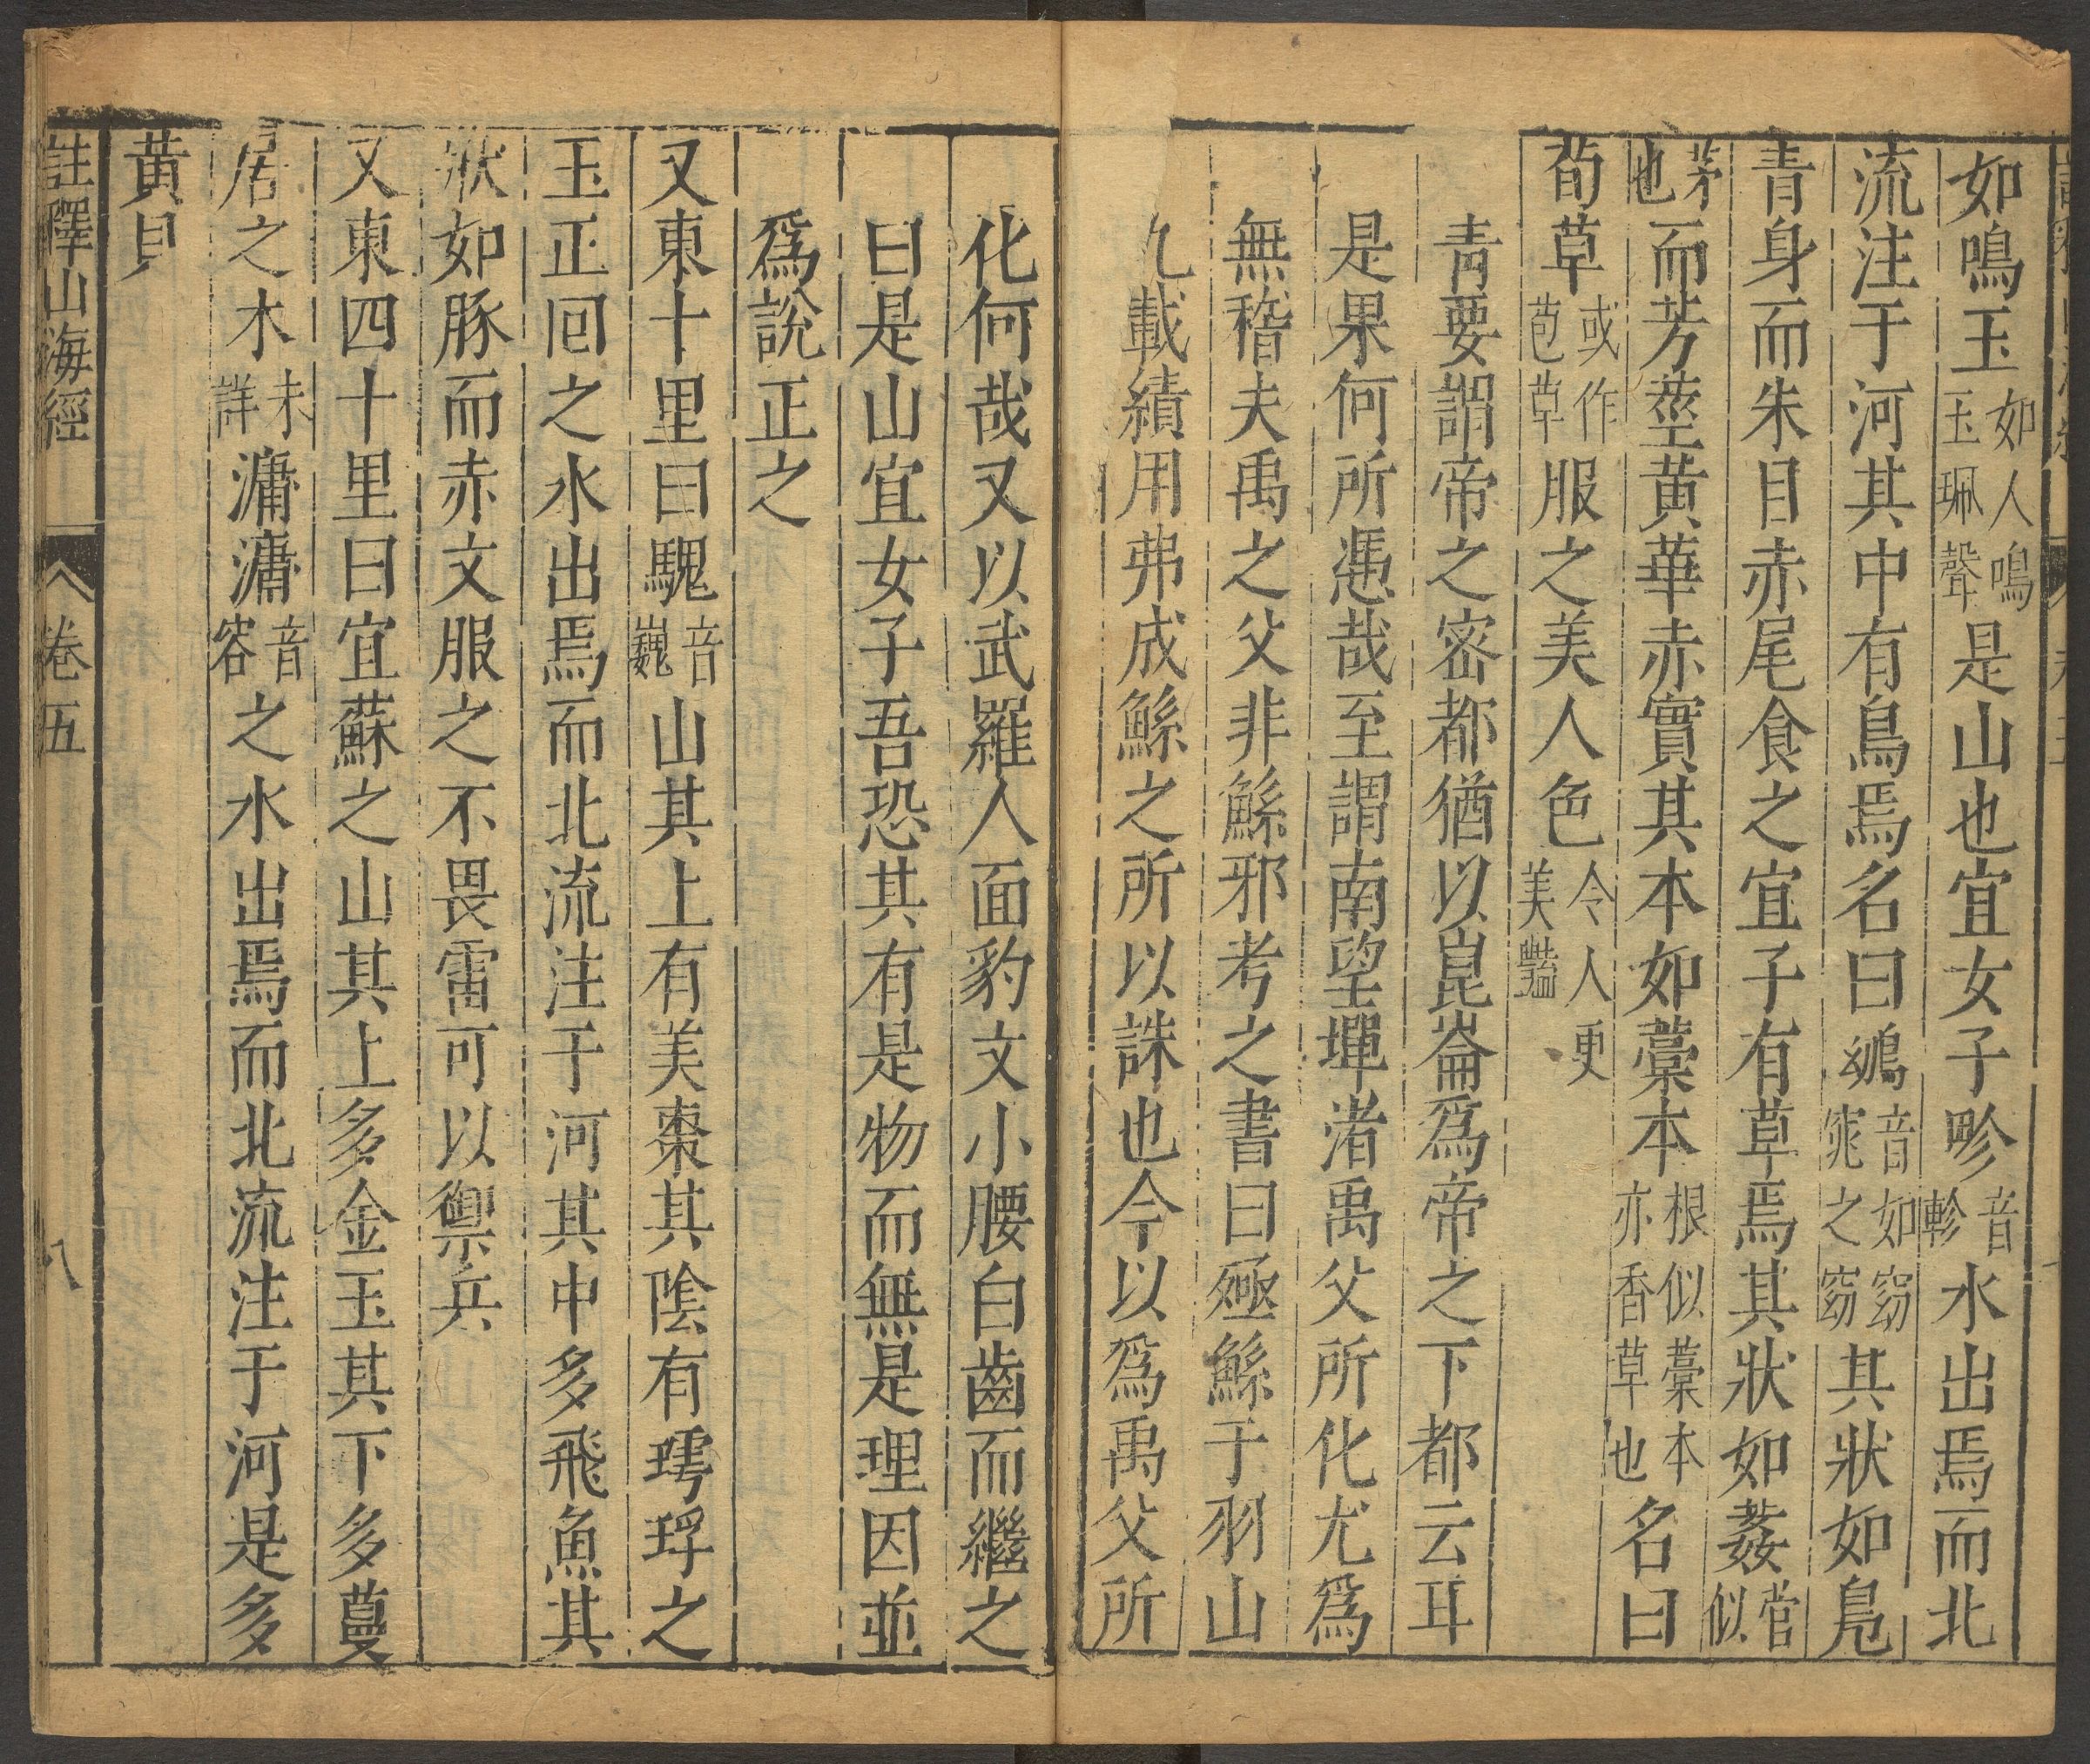 如鳴玉如人鳴玉珮聲是山也宜女子畛音軫水出焉而北
流注于河其中有鳥焉名曰鴢音如窈窕之窈其狀如鳧
青身而朱目赤尾食之宜子有草焉其狀如葌菅似
茅也而芳莖黃華赤實其本如藁本根似藁本亦香草也名曰
荀草或作苞草服之美人色令人更美豔
青要謂帝之密都猶以崑崙爲帝之下都云耳
是果何所憑哉至謂南望墠渚禹父所化尤爲
無稽夫禹之父非鯀邪考之書曰殛鯀于羽山
九載績用弗成鯀之所以誅也今以爲禹父所
化何哉又以武羅人面豹文小腰白齒而繼之
曰是山宜女子吾恐其有是物而無是理因並
爲說正之
又東十里曰騩音巍山其上有美棗其陰有㻬琈之
玉正囘之水出焉而北流注于河其中多飛魚其
狀如豚而赤文服之不畏雷可以禦兵
又東四十里曰宜蘇之山其上多金玉其下多蔓
居之木未詳滽滽音容之水出焉而北流注于河是多
黃貝
註釋山海經 卷五 八